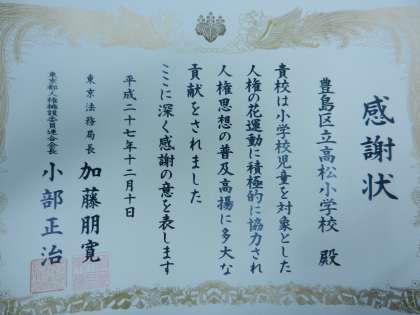 感謝状
豊島区立高松小学校 殿
貴校は小学校児童を対象とした
人権の花運動に積極的に協力され
人権思想の普及高揚に多大な
貢献をされました
ここに深く感謝の意を表します
平成二十七年十二月十日
東京法務局長 加藤朋寛
東京都人権擁護委員連合会長 小部正治